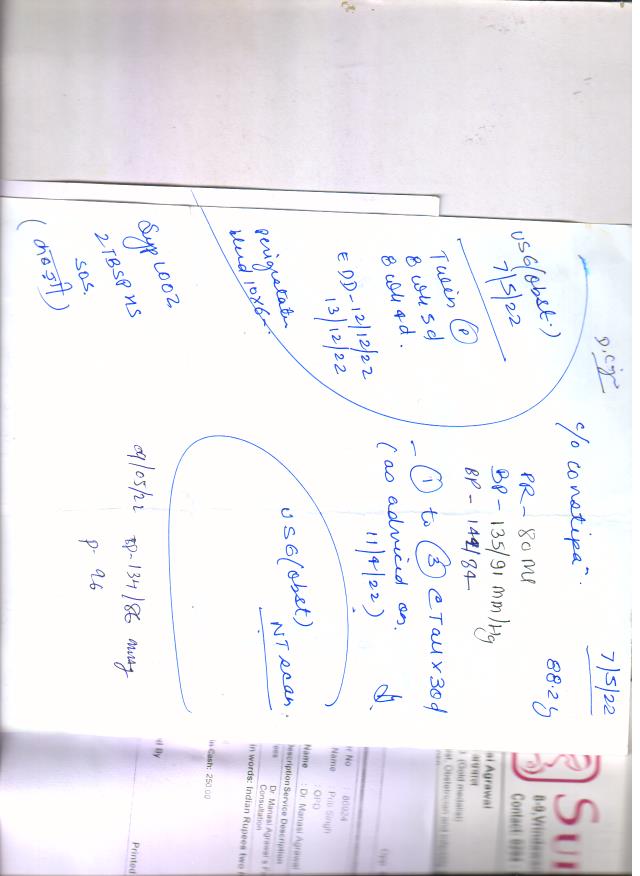 7/5/22
88.2
c/o constipaⁿ.
PR - 80 M
BP - 135/91 mm/Hg
BP - 144/84
- ① to ③ c Tab x 30d
(as adviced on
11/4/22)
USG (obst)
NT scan.
04/05/22 BP-134/86 mmHg
P- 96
USG (obst.)
7/5/22
Twin
8 wk 5d
8 wk 4d.
EDD - 12/12/22
13/12/22
perigestatn
bleed 10x6
Syp Looz
2 TBSP HS
SOS.
Sur
Contact
si Agrawal
(Gold medalist)
Obstetrician and
No : 80934
Name : Priti Singh
: OPD
Name : Dr. Manasi Agrawal
Description Service Description
Dr. Manasi Agrawal's
Consultation
In words: Indian Rupees two
in Cash: 250.00
Printed
d By